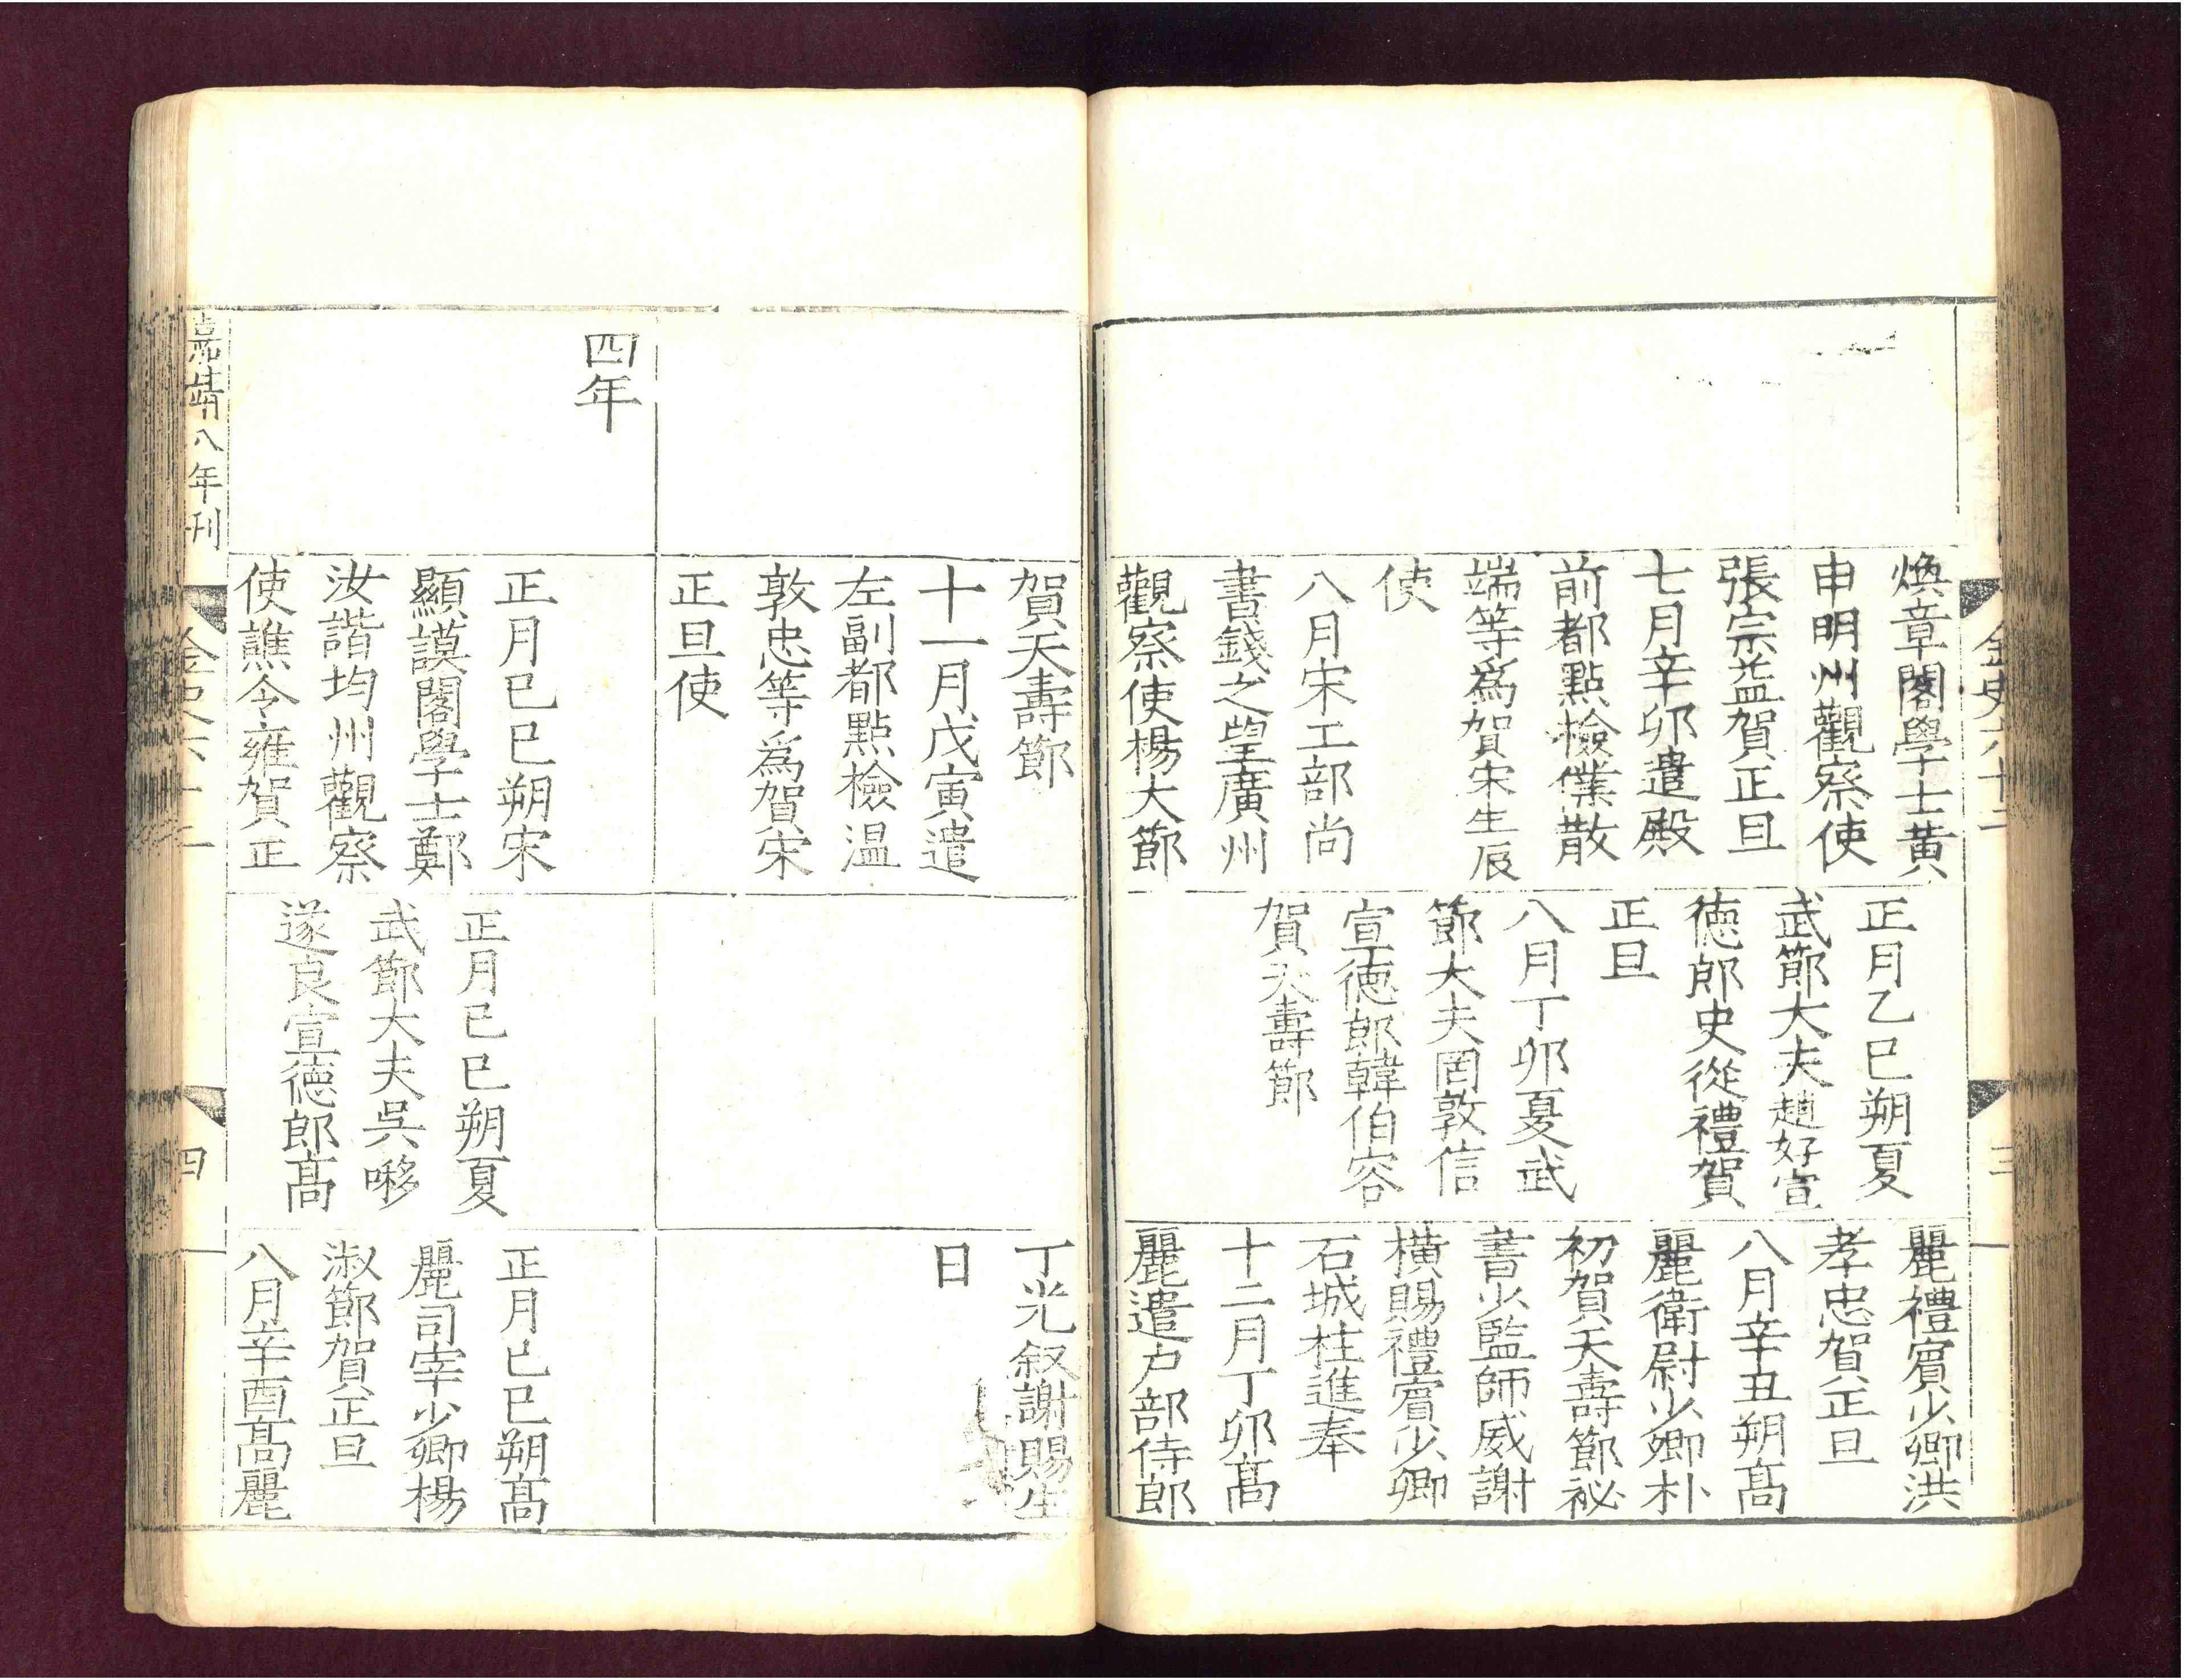 金史六十二
三
煥章閣學士黃
申明州觀察使
張宗益賀正旦
七月辛卯遣殿
前都點檢僕散
端等爲賀宋生辰
使
八月宋工部尚
書錢之望廣州
觀察使楊大節
正月乙巳朔夏
武節大夫趙好宣
德郎史從禮賀
正旦
八月丁卯夏武
節大夫罔敦信
宣德郎韓伯容
賀天壽節
麗禮賓少卿洪
孝忠賀正旦
八月辛丑朔高
麗衛尉少卿朴
初賀天壽節祕
書少監師威謝
橫賜禮賓少卿
石城柱進奉
十二月丁卯高
麗遣户部侍郎
賀天壽節
十一月戊寅遣
左副都點檢温
敦忠等爲賀宋
正旦使
丁光叙謝賜生
日
四年
正月已巳朔宋
顯謨閣學士鄭
汝諧均州觀察
使譙令雍賀正
正月已巳朔夏
武節大夫吳㖼
遂良宣德郎高
正月已巳朔高
麗司宰少卿楊
淑節賀正旦
八月辛酉高麗
嘉靖八年刊
金史六十二
四